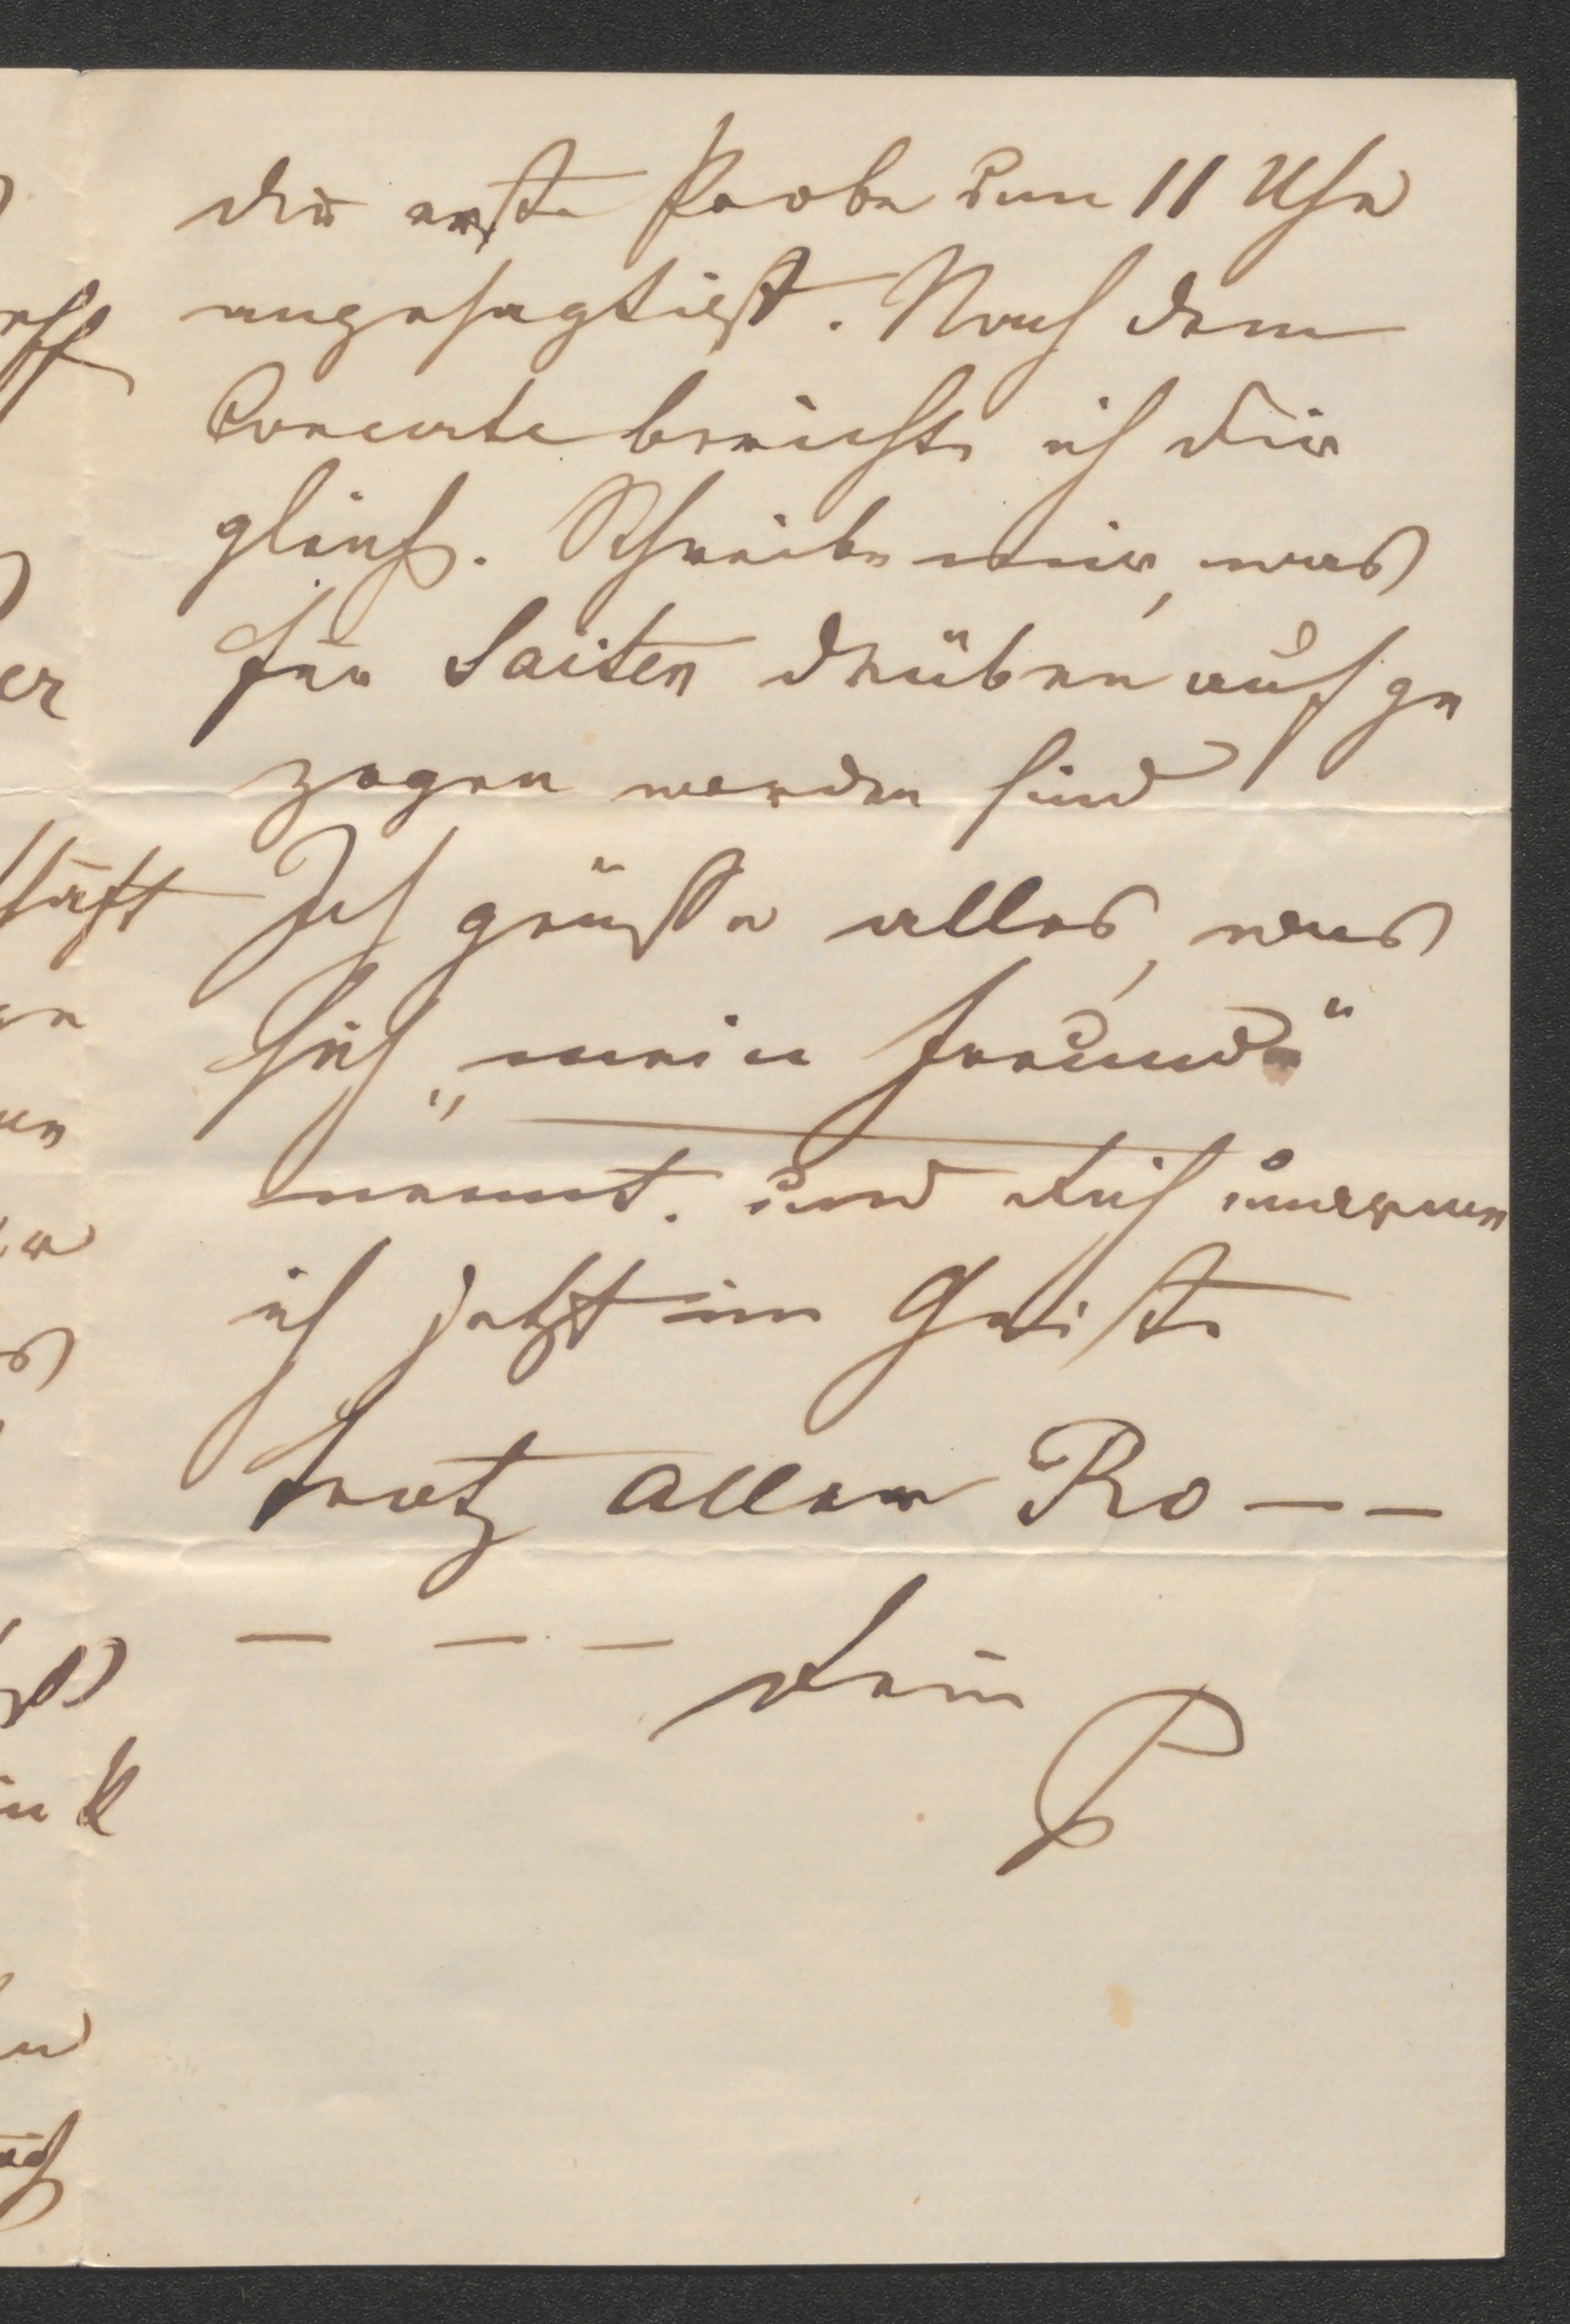 die erste Probe um 11 Uhr
angesagt ist. Nach dem
Concerte berichte ich Dir
gleich. Schreibe mir, was
für Saiten drüben aufge
zogen worden sind
Ich grüsse alles, was
sich „mein Freund“
nennt. und Dich umarme
ich jetzt im Geiste
trotz allem Ro — —
— — — Dein
P
er